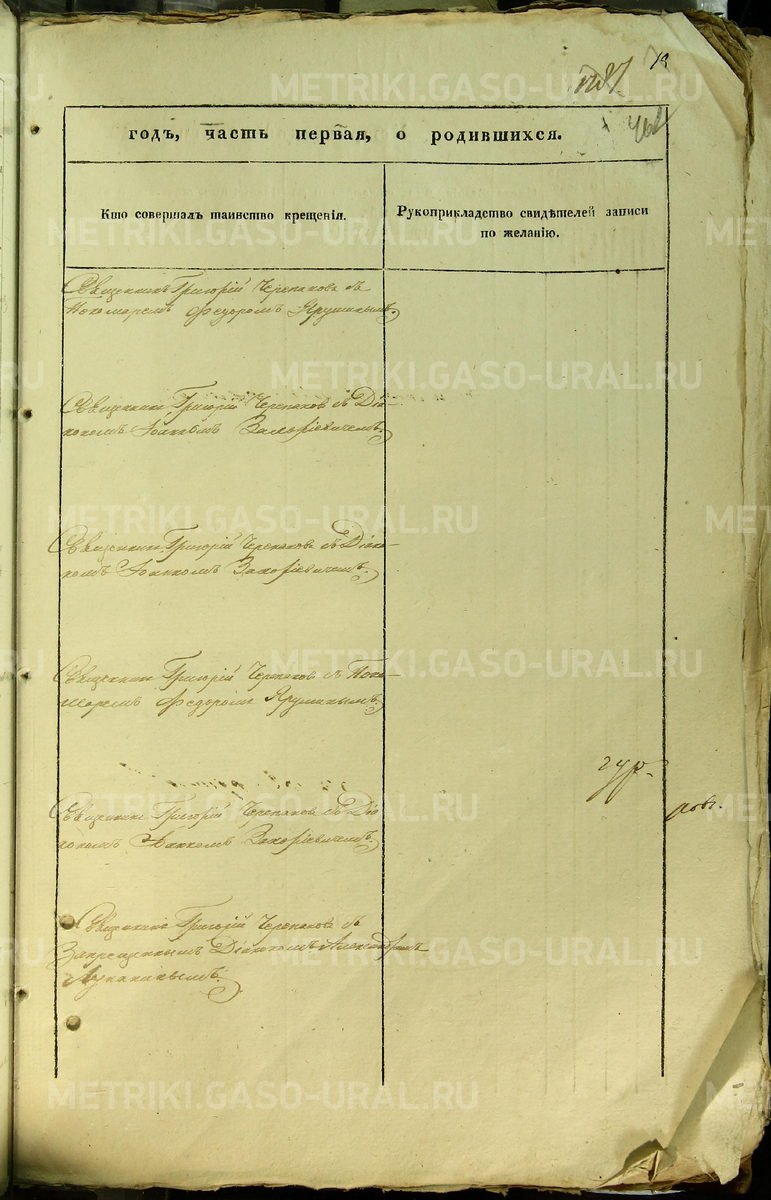 19
годъ, часть первая, о родившихся.
Кто совершалъ таинство крещенія.
Рукоприкладство свидѣтелей записи
по желанію.
Священникъ Григорій Черепановъ съ
Пономаремъ Федоромъ Ярушинымъ.
Священникъ Григорій Черепановъ съ Діа-
кономъ Іоанномъ
Священникъ Григорій Черепановъ съ Діако-
номъ Іоанномъ
Священникъ Григорій Черепановъ съ Поно-
маремъ Федоромъ Ярушинымъ.
Священникъ Григорій Черепановъ съ Діа
кономъ Іоанномъ
Священникъ Григорій Черепановъ съ
Запрещеннымъ Діакономъ Александромъ
METRIKI.GASO-URAL.RU